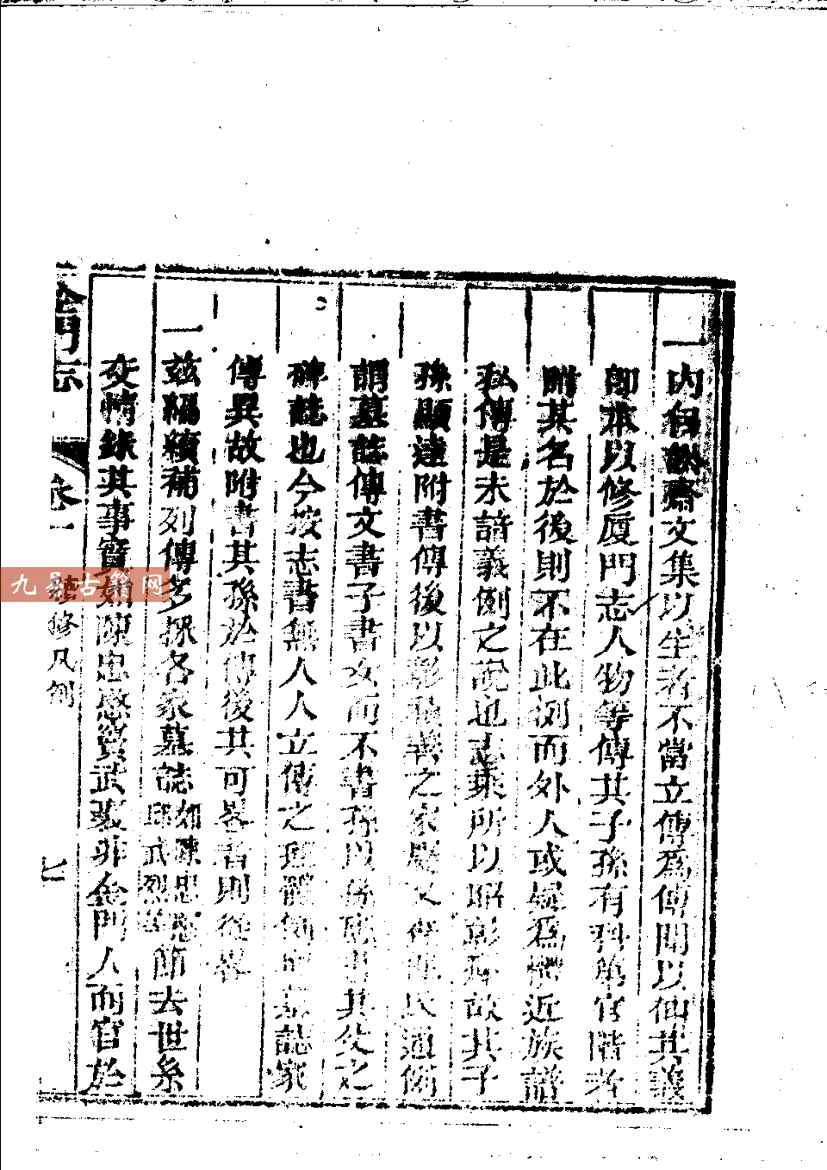 一內自訟齋文集以生者不當立傳為傳聞以仙其義
卽本以修廈門志人物等傳其子孫有科第官階者
附其名於後則不在此例而外人或疑為體近族譜
私傳是未諳義例之說也志乘所以昭彰癉故其子
孫顯達附書傳後以彰積善之家慶又存氏通俗
謂墓誌傳文書子書女而不書孫以孫應書其父之
碑誌也今按志書無人人立傳之理體例與墓誌家
傳異故附書其孫於傳後其可畧者則從畧
一茲編續補列傳多採各家墓誌如陳忠愍邱武烈等節去世系
交情錄其事實如陳忠愍賓武裴非金門人而官於
金門志 卷一 續修凡例 七
九易古籍网